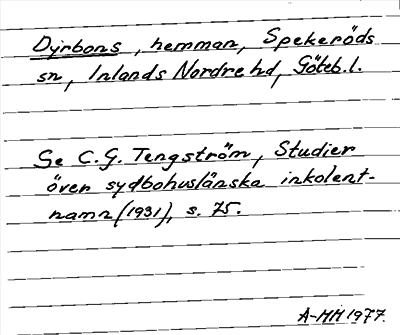 Dyrbons, hemman, Spekeröds
sn, Inlands Nordre hd, Göteb.l.
Se C.G. Tengström, Studier
över sydbohuslänska inkolent-
namn (1931), s. 75.
A-MH 1977.